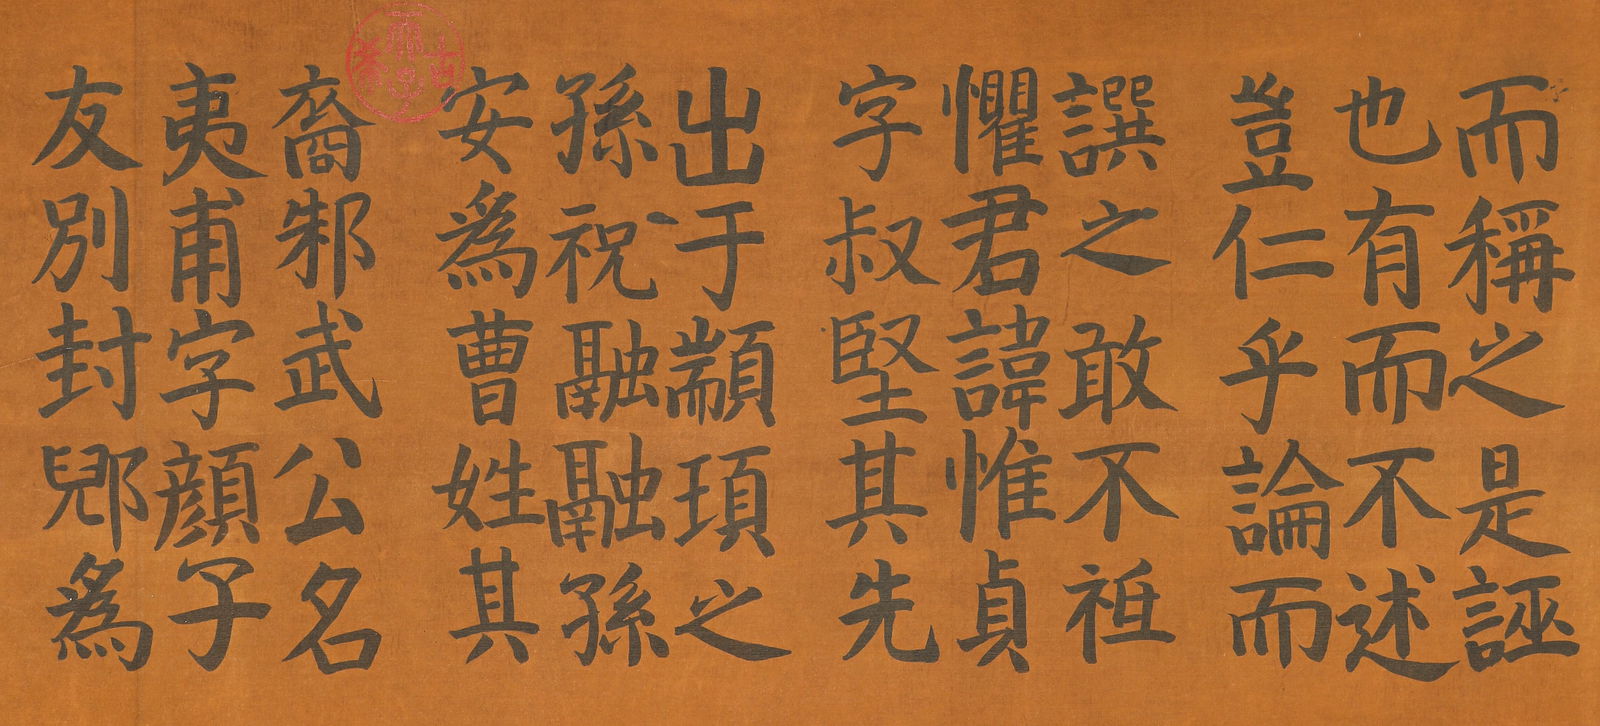 而稱之是誣
也有而不述
豈仁乎論而
譔之敢不祗
懼君諱惟貞
字叔堅其先
出于顓頊之
孫祝融融孫
安為曹姓其
裔邾武公名
夷甫字顏子
友別封郳為